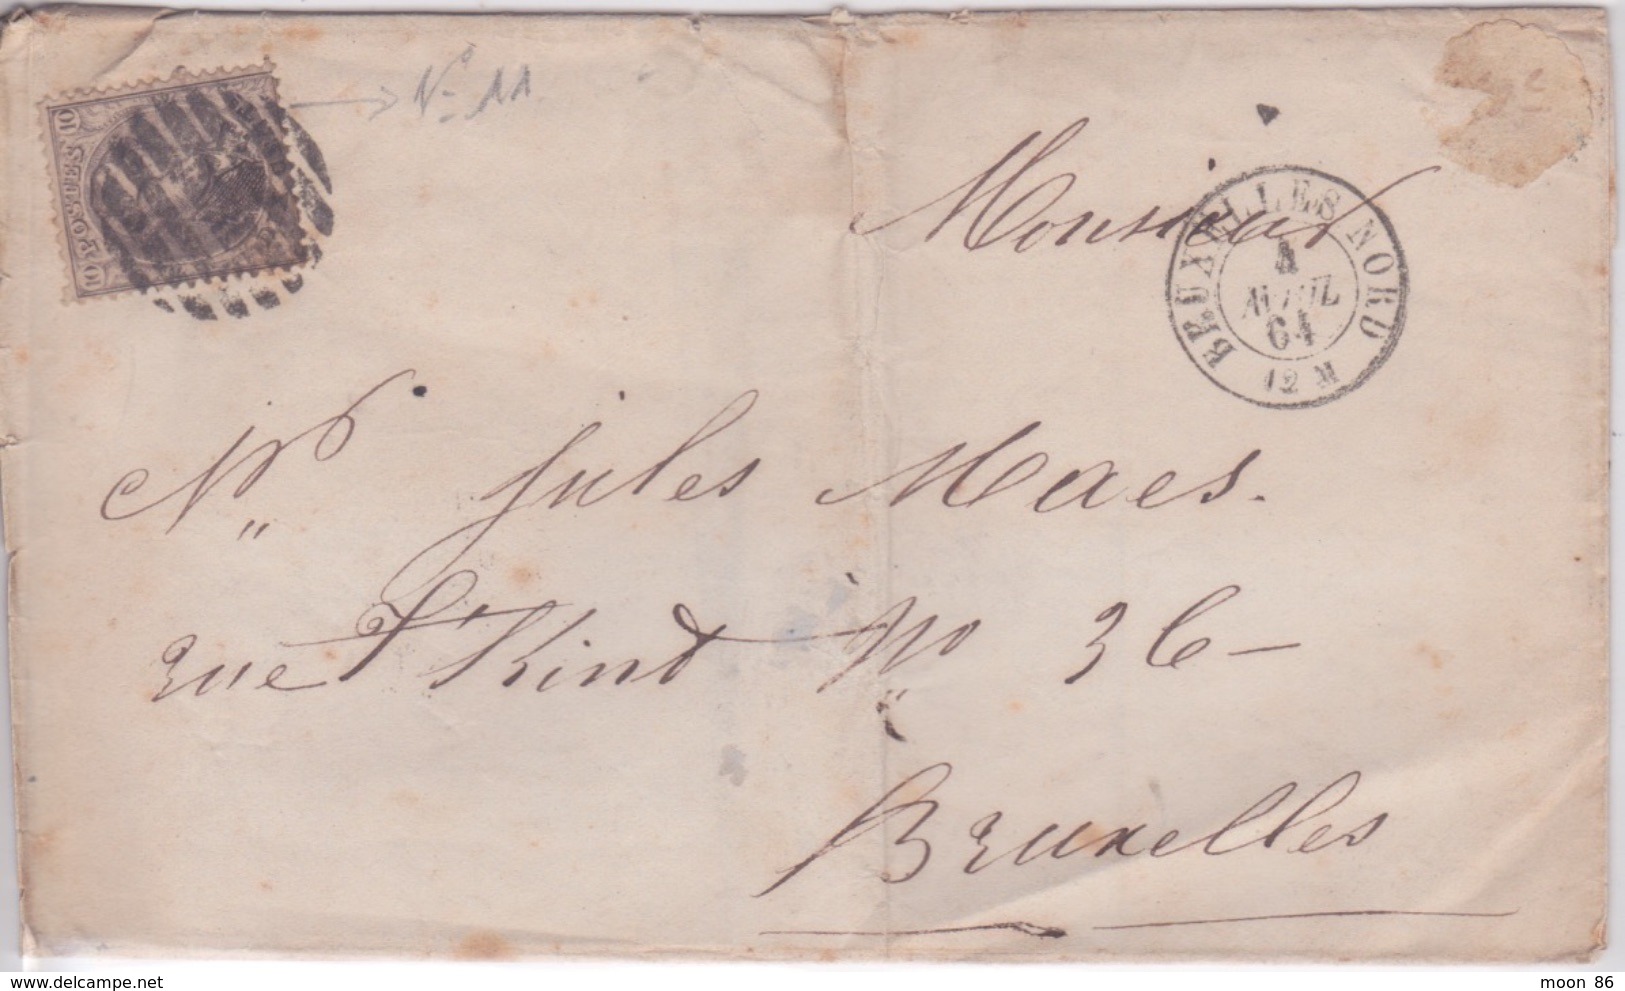 10 POSTES 10
N° 11
Monsieur
BRUXELLES NORD
4
AVRIL
64
12 M
Jules Maes.
rue Kint N° 36 -
Bruxelles
moon 86